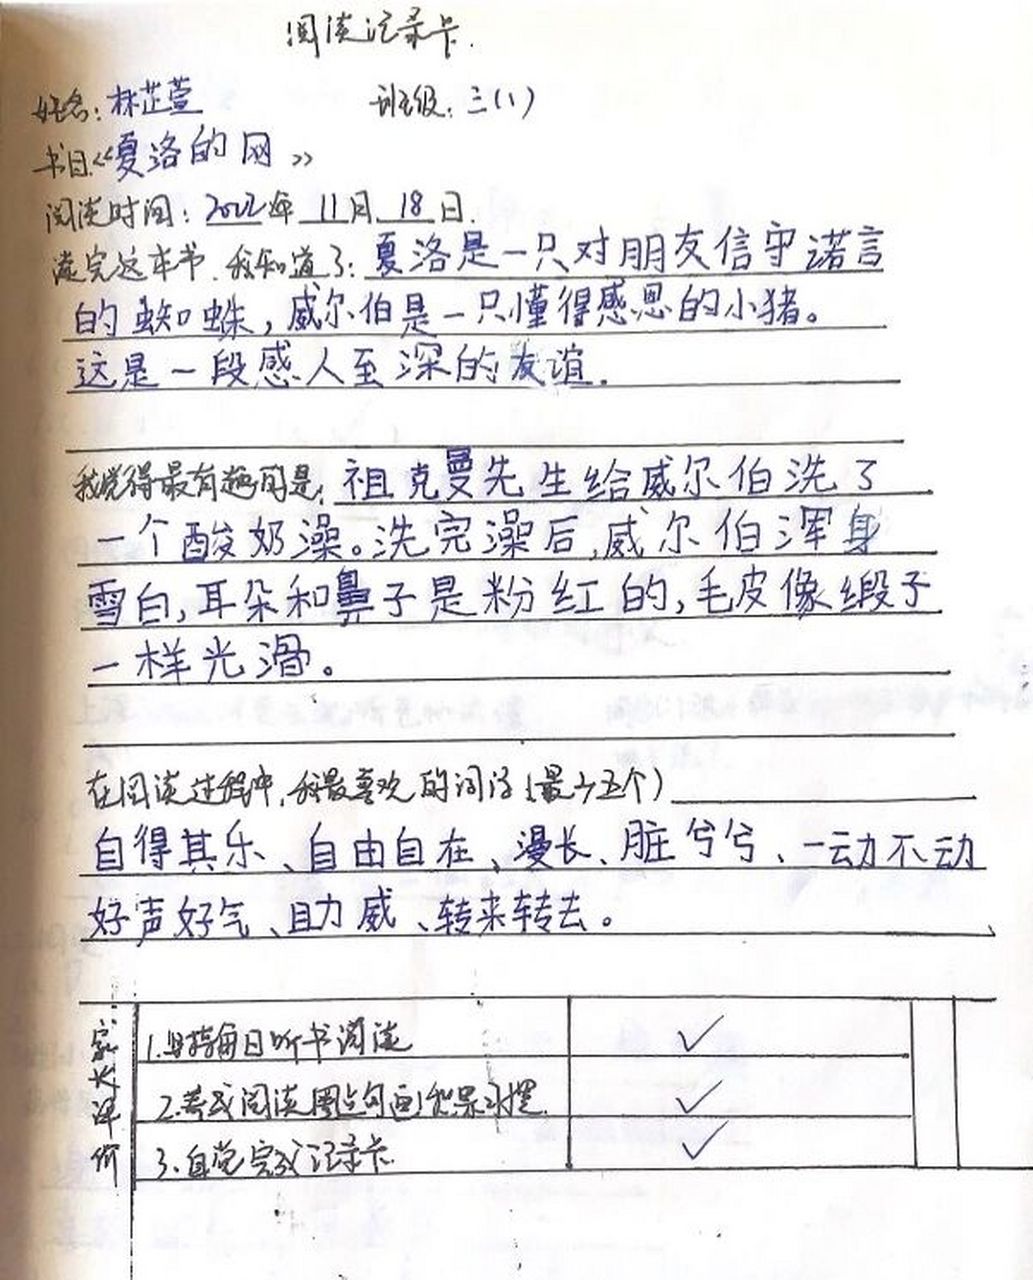 阅读记录卡.
姓名:林芷萱 班级:三(1)
书目《夏洛的网》
阅读时间:2022年11月18日.
读完这本书.我知道了:夏洛是一只对朋友信守诺言
的蜘蛛,威尔伯是一只懂得感恩的小猪。
这是一段感人至深的友谊.
我觉得最有趣的是:祖克曼先生给威尔伯洗了
一个酸奶澡。洗完澡后,威尔伯浑身
雪白,耳朵和鼻子是粉红的,毛皮像缎子
一样光滑。
在阅读过程中,我最喜欢的词语(最少五个)
自得其乐、自由自在、漫长、脏兮兮、一动不动
好声好气、助威、转来转去。
家长评价
1.坚持每日听书阅读 ✓
2.养成阅读圈点勾画批 习惯. ✓
3.自觉完成记录卡 ✓